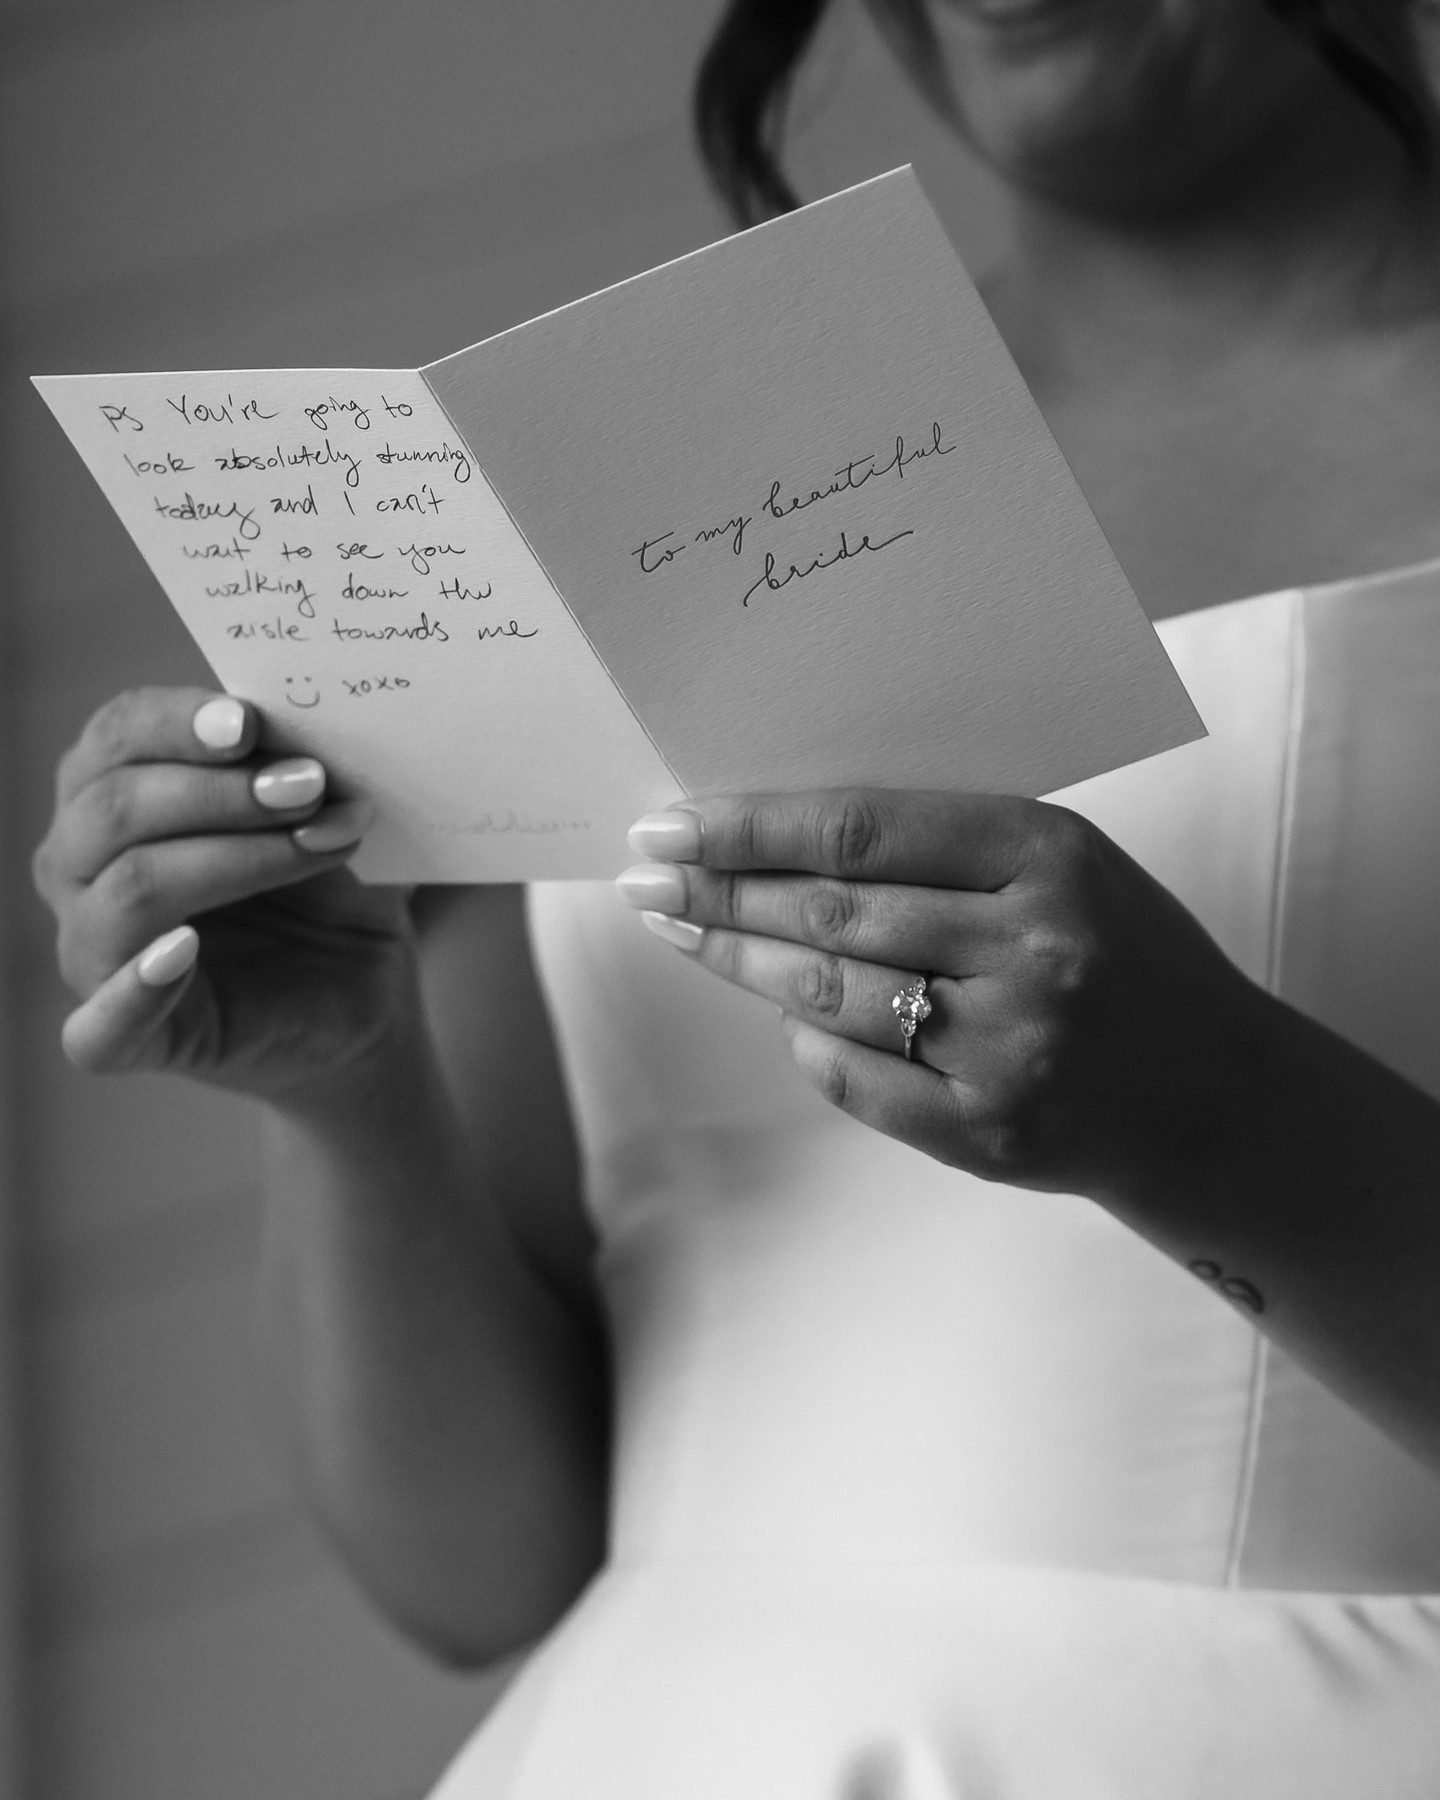 PS You're going to
look absolutely stunning
today and I can't
wait to see you
walking down the
aisle towards me
xoxo
to my beautiful
bride